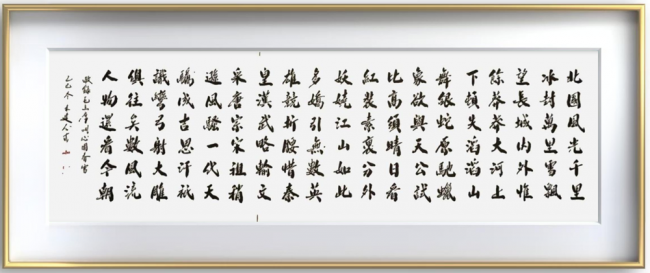 北國風光千里
冰封萬里雪飄
望長城內外惟
餘莽莽大河上
下頓失滔滔山
舞銀蛇原馳蠟
象欲與天公試
比高須晴日看
紅裝素裹分外
妖嬈江山如此
多嬌引無數英
雄競折腰惜秦
皇漢武略輸文
采唐宗宋祖稍
遜風騷一代天
驕成吉思汗祇
識彎弓射大雕
俱往矣數風流
人物還看今朝
敬錄毛主席詞沁園春雪
乙巳冬